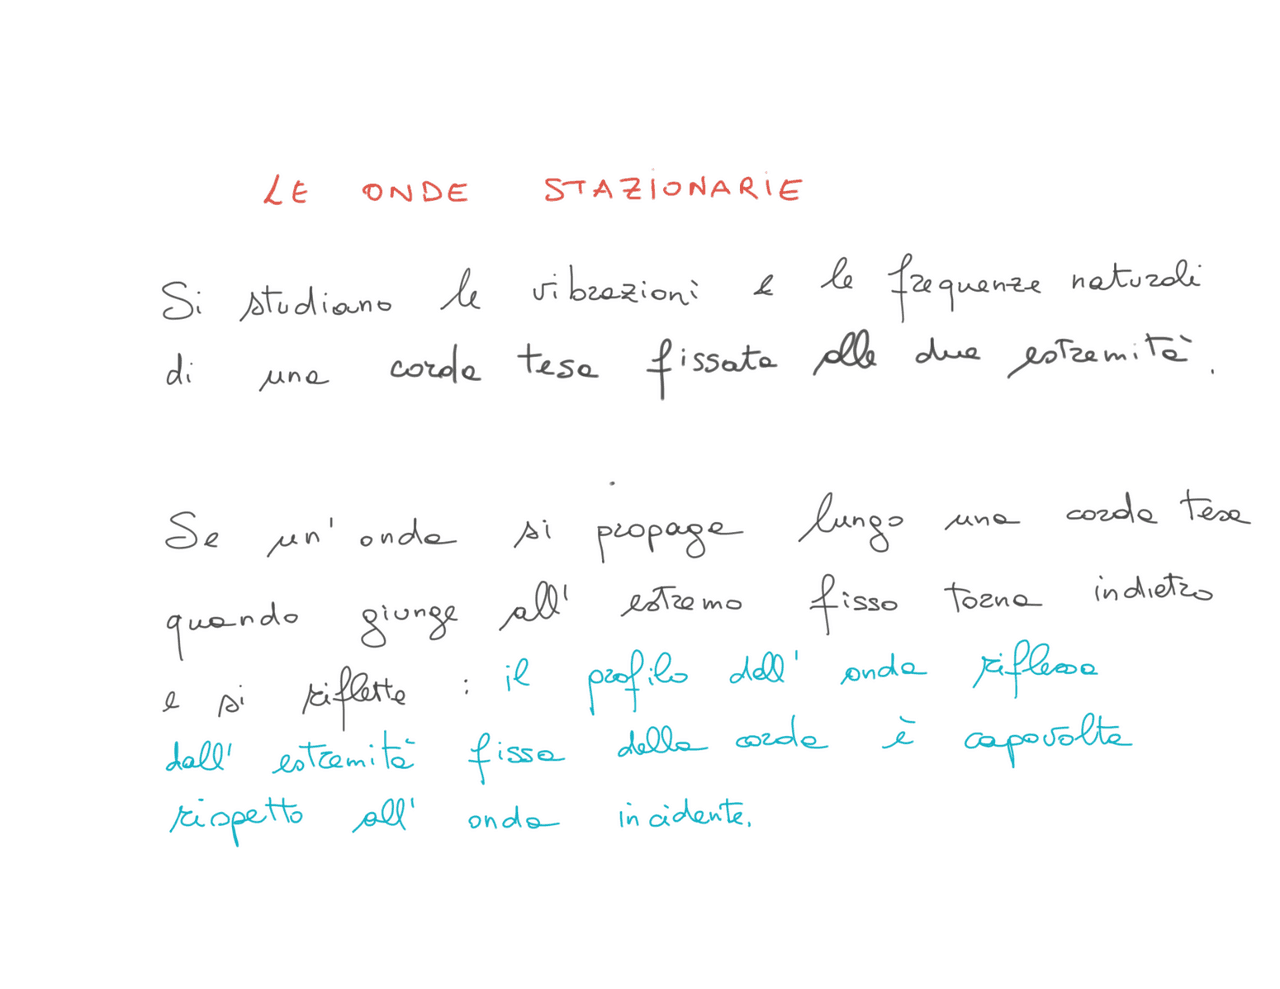 LE ONDE STAZIONARIE
Si studiano le vibrazioni e le frequenze naturali
di una corda tesa fissata alle due estremità.
Se un' onda si propaga lungo una corda tesa
quando giunge all' estremo fisso torna indietro
e si riflette : il profilo dell' onda riflessa
dall' estremità fissa della corda è capovolta
rispetto all' onda incidente.